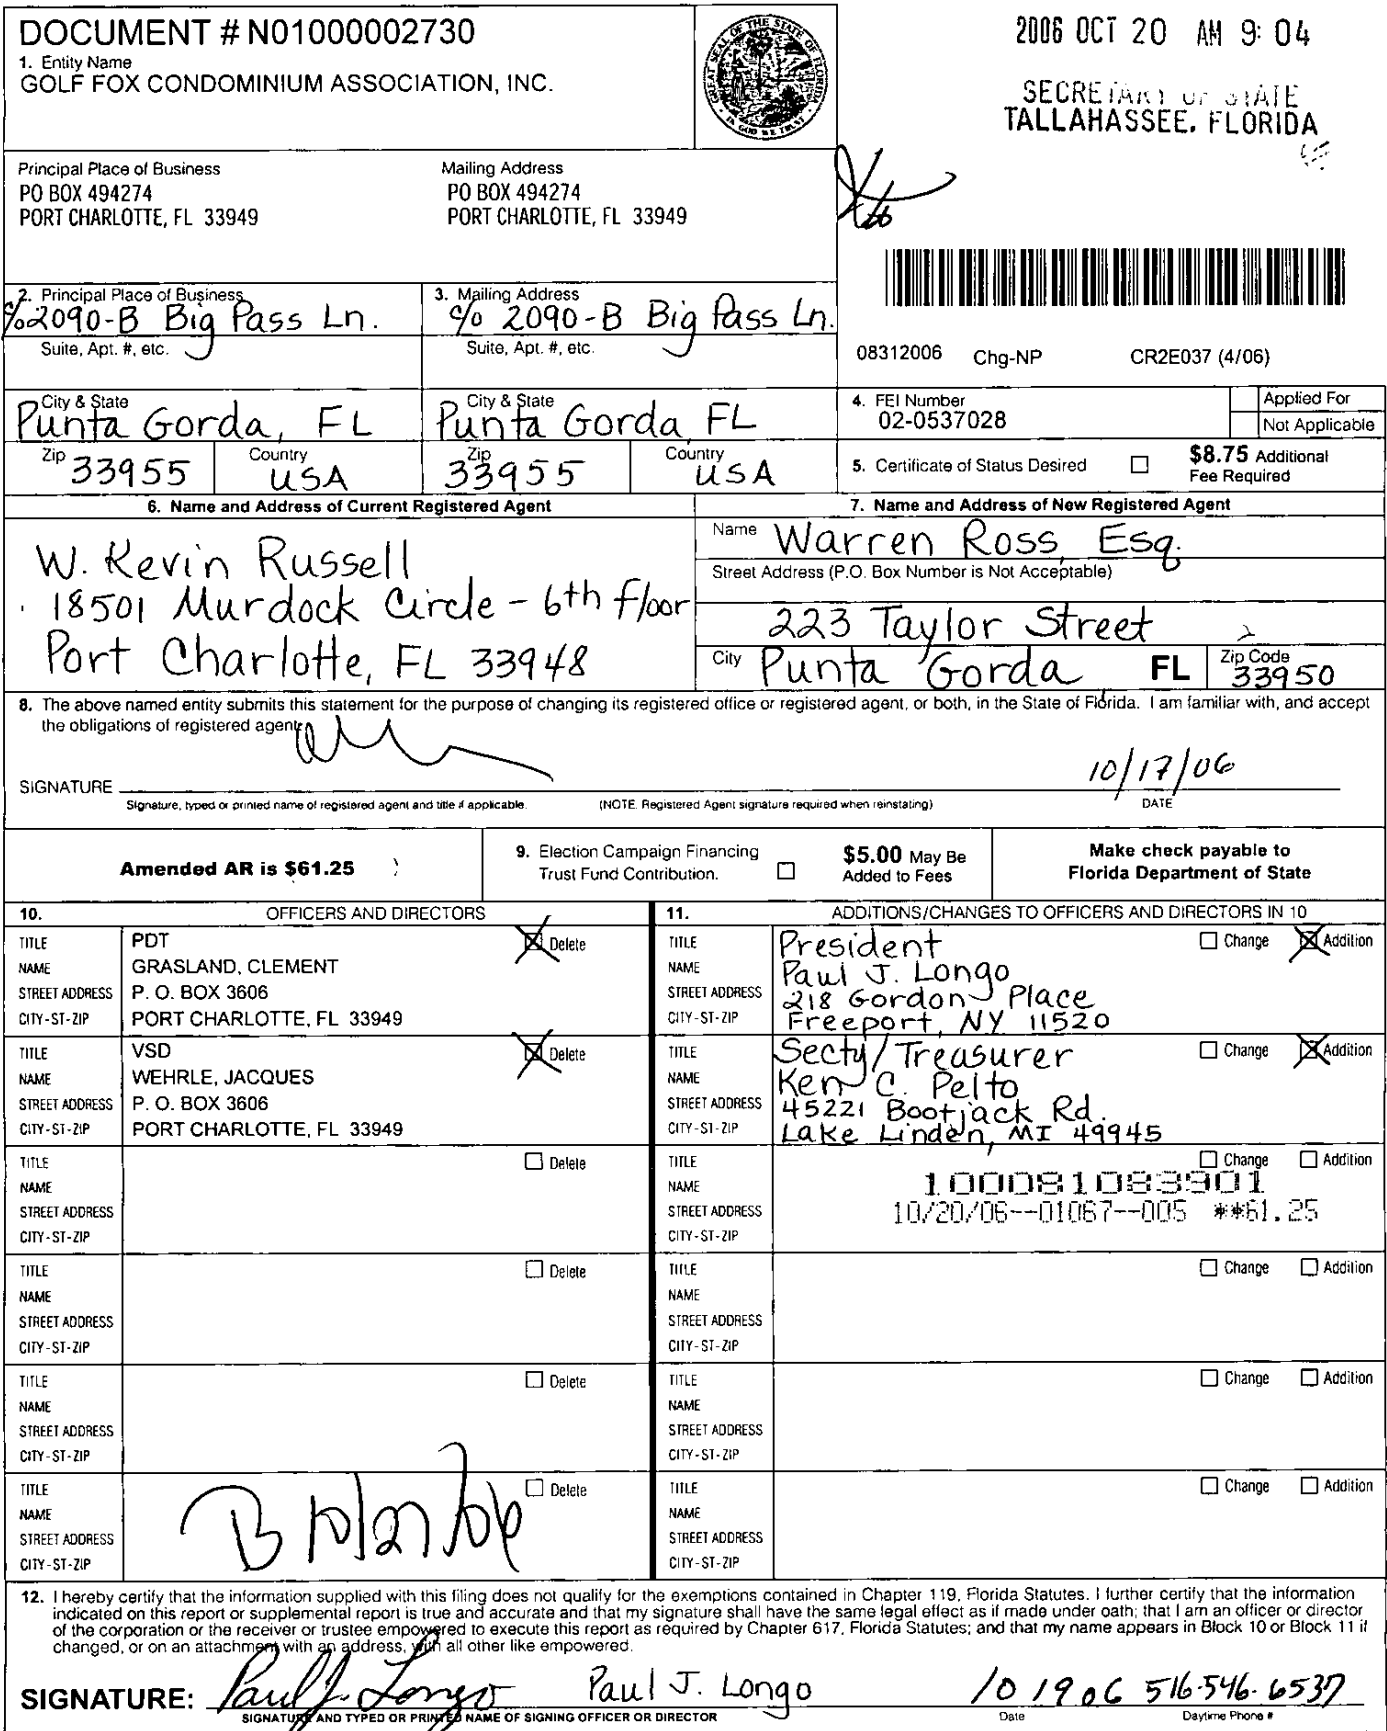 DOCUMENT # N01000002730
1. Entity Name
GOLF FOX CONDOMINIUM ASSOCIATION, INC.
GREAT SEAL OF THE STATE OF FLORIDA
IN GOD WE TRUST
2006 OCT 20 AM 9:04
SECRETARY OF STATE
TALLAHASSEE, FLORIDA
Principal Place of Business
PO BOX 494274
PORT CHARLOTTE, FL 33949
Mailing Address
PO BOX 494274
PORT CHARLOTTE, FL 33949
2. Principal Place of Business
c/o 2090-B Big Pass Ln.
Suite, Apt. #, etc.
3. Mailing Address
c/o 2090-B Big Pass Ln.
Suite, Apt. #, etc.
08312006 Chg-NP CR2E037 (4/06)
City & State
Punta Gorda, FL
City & State
Punta Gorda, FL
Zip 33955
Country USA
Zip 33955
Country USA
4. FEI Number
02-0537028
Applied For
Not Applicable
5. Certificate of Status Desired
$8.75 Additional
Fee Required
6. Name and Address of Current Registered Agent
W. Kevin Russell
18501 Murdock Circle - 6th Floor
Port Charlotte, FL 33948
7. Name and Address of New Registered Agent
Name Warren Ross, Esq.
Street Address (P.O. Box Number is Not Acceptable)
223 Taylor Street
City Punta Gorda FL Zip Code 33950
8. The above named entity submits this statement for the purpose of changing its registered office or registered agent, or both, in the State of Florida. I am familiar with, and accept
the obligations of registered agent.
SIGNATURE
10/17/06
Signature, typed or printed name of registered agent and title if applicable. (NOTE: Registered Agent signature required when reinstating) DATE
Amended AR is $61.25
9. Election Campaign Financing
Trust Fund Contribution.
$5.00 May Be
Added to Fees
Make check payable to
Florida Department of State
10. OFFICERS AND DIRECTORS
TITLE PDT Delete
NAME GRASLAND, CLEMENT
STREET ADDRESS P. O. BOX 3606
CITY-ST-ZIP PORT CHARLOTTE, FL 33949
TITLE VSD Delete
NAME WEHRLE, JACQUES
STREET ADDRESS P. O. BOX 3606
CITY-ST-ZIP PORT CHARLOTTE, FL 33949
TITLE Delete
NAME
STREET ADDRESS
CITY-ST-ZIP
TITLE Delete
NAME
STREET ADDRESS
CITY-ST-ZIP
TITLE Delete
NAME
STREET ADDRESS
CITY-ST-ZIP
TITLE Delete
NAME
STREET ADDRESS
CITY-ST-ZIP
11. ADDITIONS/CHANGES TO OFFICERS AND DIRECTORS IN 10
TITLE President Change Addition
NAME Paul J. Longo
STREET ADDRESS 218 Gordon Place
CITY-ST-ZIP Freeport, NY 11520
TITLE Secty/Treasurer Change Addition
NAME Ken C. Pelto
STREET ADDRESS 45221 Bootjack Rd.
CITY-ST-ZIP Lake Linden, MI 49945
TITLE Change Addition
NAME 100081083901
STREET ADDRESS 10/20/06--01067--005 **61.25
CITY-ST-ZIP
TITLE Change Addition
NAME
STREET ADDRESS
CITY-ST-ZIP
TITLE Change Addition
NAME
STREET ADDRESS
CITY-ST-ZIP
TITLE Change Addition
NAME
STREET ADDRESS
CITY-ST-ZIP
12. I hereby certify that the information supplied with this filing does not qualify for the exemptions contained in Chapter 119, Florida Statutes. I further certify that the information
indicated on this report or supplemental report is true and accurate and that my signature shall have the same legal effect as if made under oath; that I am an officer or director
of the corporation or the receiver or trustee empowered to execute this report as required by Chapter 617, Florida Statutes; and that my name appears in Block 10 or Block 11 if
changed, or on an attachment with an address, with all other like empowered.
SIGNATURE: Paul J. Longo Paul J. Longo 10 19 06 516-546-6537
SIGNATURE AND TYPED OR PRINTED NAME OF SIGNING OFFICER OR DIRECTOR Date Daytime Phone #